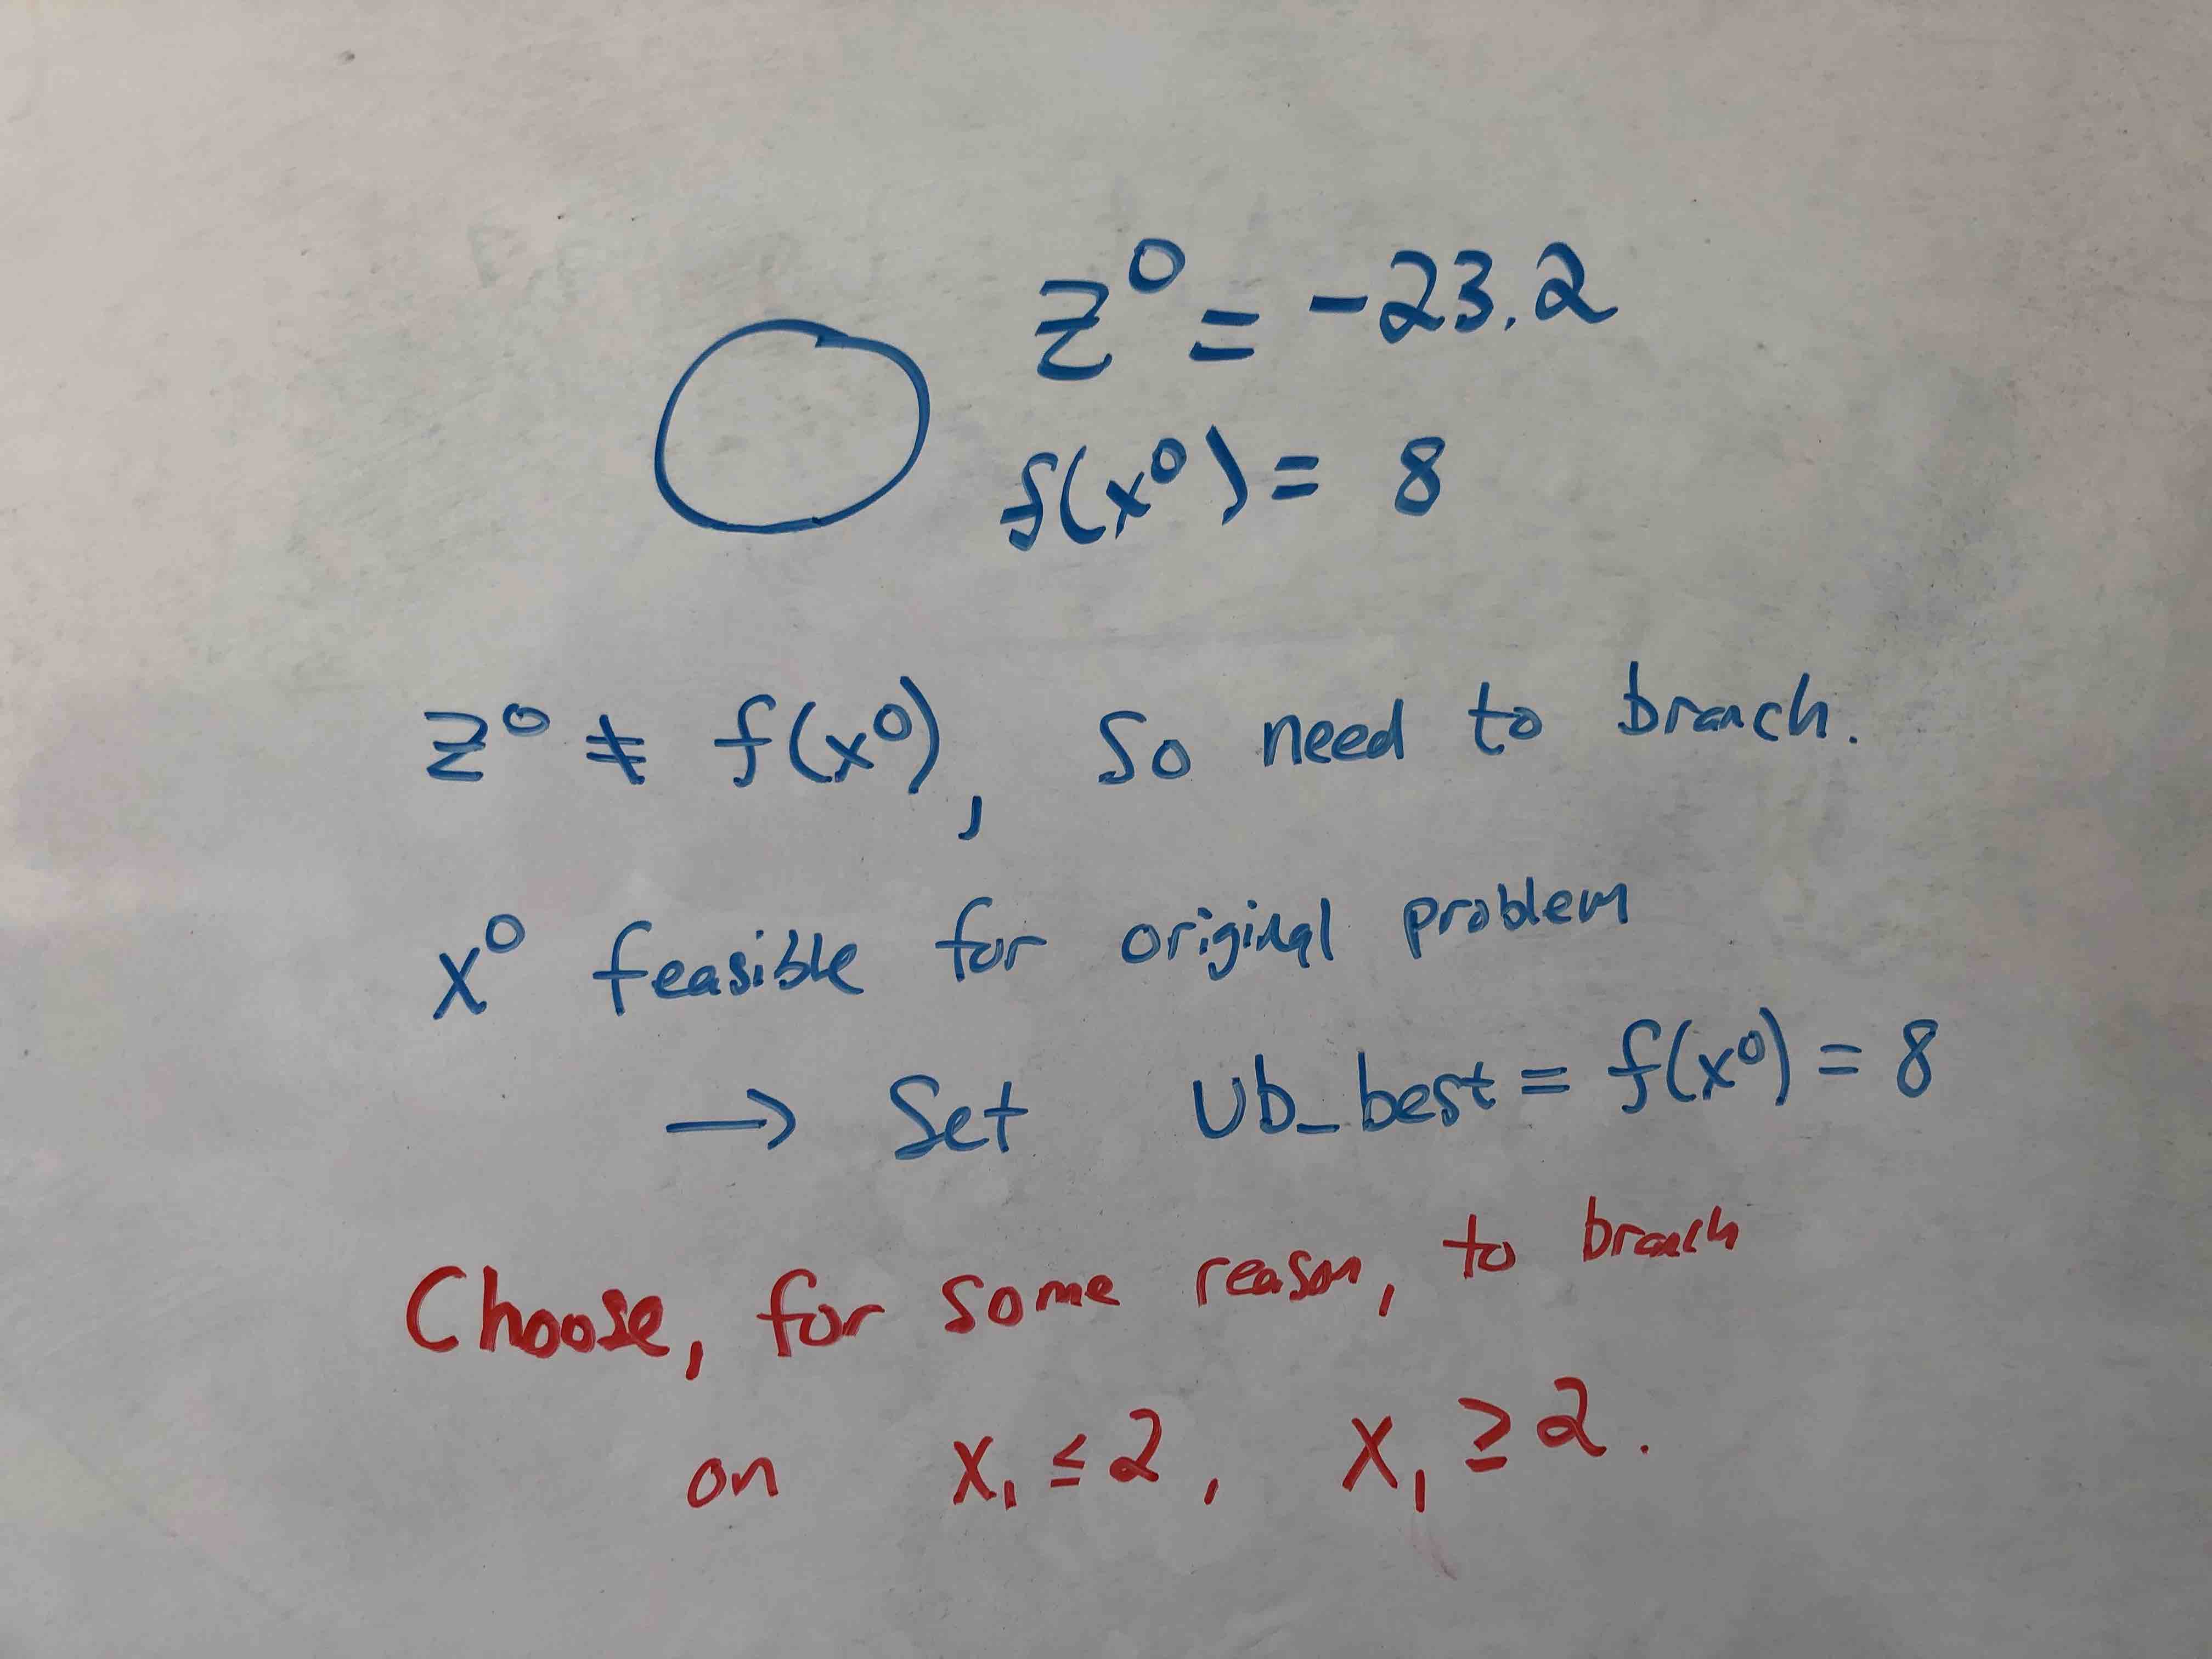 z⁰ = -23.2
f(x⁰) = 8
z⁰ ≠ f(x⁰), so need to branch.
x⁰ feasible for original problem
→ Set Ub_best = f(x⁰) = 8
Choose, for some reason, to branch
on x₁ ≤ 2, x₁ ≥ 2.